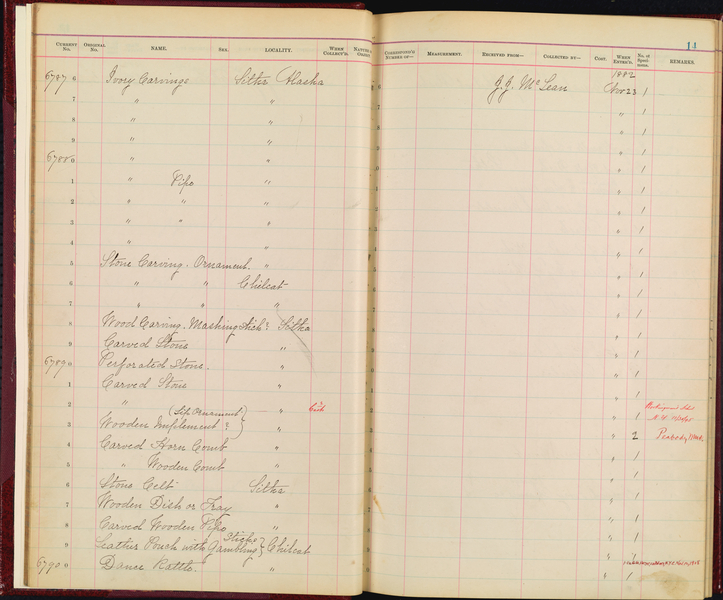 14
CURRENT No. ORIGINAL No. NAME. SEX. LOCALITY. WHEN COLLECT'D. NATURE OF OBJECT. CORRESPOND'G NUMBER OF— MEASUREMENT. RECEIVED FROM— COLLECTED BY— COST. WHEN ENTER'D. No. of Speci-mens. REMARKS.
1882
6787 6 Ivory Carvings Sitka Alaska 6 J. J. McLean Nov 23 1
7 " " 7 " 1
8 " " 8 " 1
9 " " 9 " 1
6788 0 " " 0 " 1
1 " Pipe " 1 " 1
2 " " " 2 " 1
3 " " " 3 " 1
4 " " 4 " 1
5 Stone Carving. Ornament. " 5 " 1
6 " " Chilcat 6 " 1
7 " " " 7 " 1
8 Wood Carving. Mashing Stick? Sitka 8 " 1
9 Carved Stone " 9 " 1
6789 0 Perforated Stone. " 0 " 1
1 Carved Stone " 1 " 1
2 " (Lip Ornament) " Cast 2 " 1
3 Wooden Implement? " 3 " 2 Peabody,
4 Carved Horn Comb " 4 " 1
5 " Wooden Comb " 5 " 1
6 Stone Celt Sitka 6 " 1
7 Wooden Dish or Tray " 7 " 1
8 Carved Wooden Pipe " 8 " 1
9 Leather Pouch with Gambling Sticks Chilcat 9 " 1
6790 0 Dance Rattle. " 0 " 1